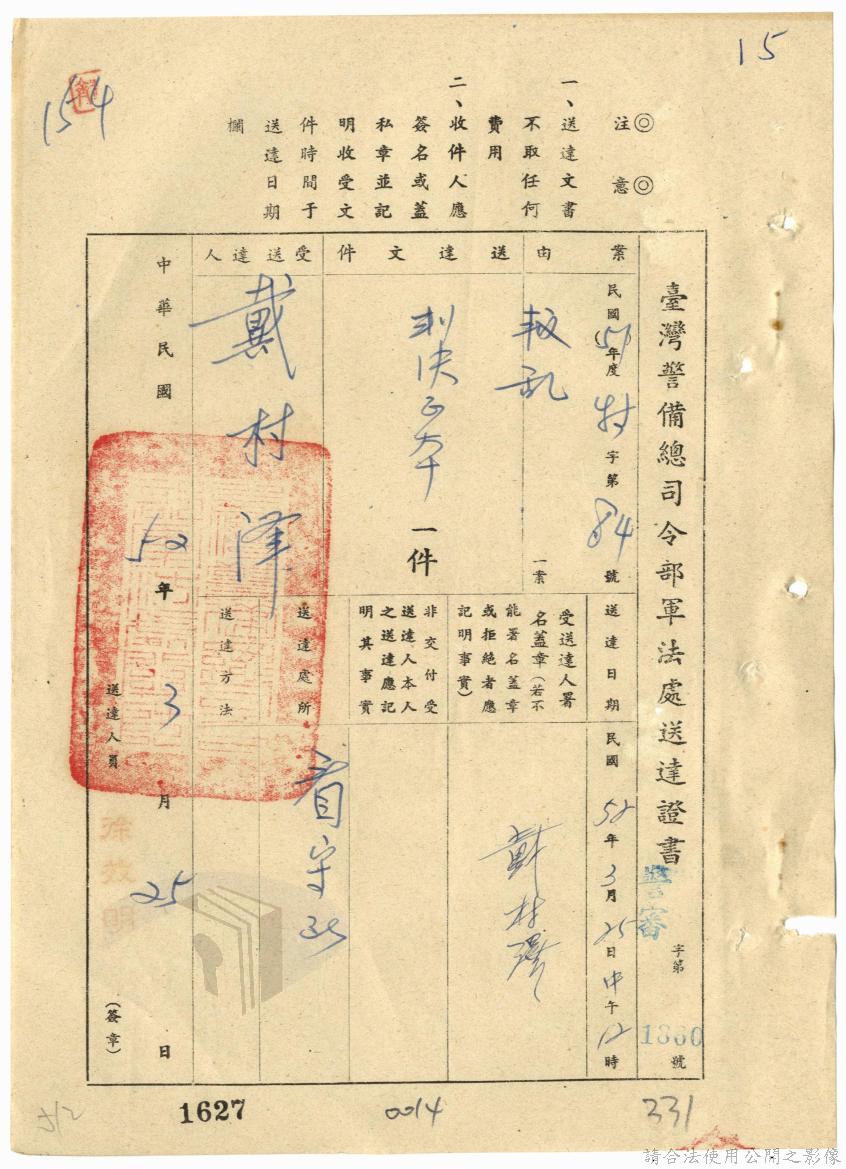 15
154
◎注意◎
一、送達文書
不取任何
費用
二、收件人應
簽名或蓋
私章並記
明收受文
件時間于
送達日期
欄
臺灣警備總司令部軍法處送達證書
警審字第1360號
案由
民國(51)年度
字第84號
叛乱
一案
送達文件
判決正本一件
受送達人
戴村澤
送達日期
民國52年3月25日中午12時
受送達人署
名蓋章(若不
能署名蓋章
或拒絕者應
記明事實)
戴村澤
非交付受
送達人本人
之送達應記
明其事實
送達處所
看守所
送達方法
中華民國52年3月25日
送達人員
徐效明
(簽章)
1627
0014
331
512
請合法使用公開之影像